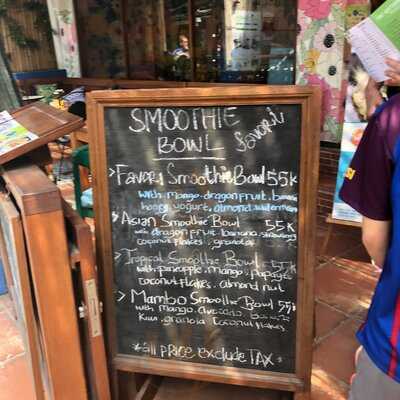 SMOOTHIE
BOWL
favori
> Favori Smoothie Bowl 55K
with mango, dragon fruit, banana
honey, yogurt, almond, watermelon
> Asian Smoothie Bowl 55K
with dragon fruit, banana, strawberry
coconut flakes, granola
> Tropical Smoothie Bowl 55K
with pineapple, mango, papaya
coconut flakes, almond nut
> Mambo Smoothie Bowl 55K
with mango, avocado,
kiwi, granola coconut flakes
*all price exclude TAX*